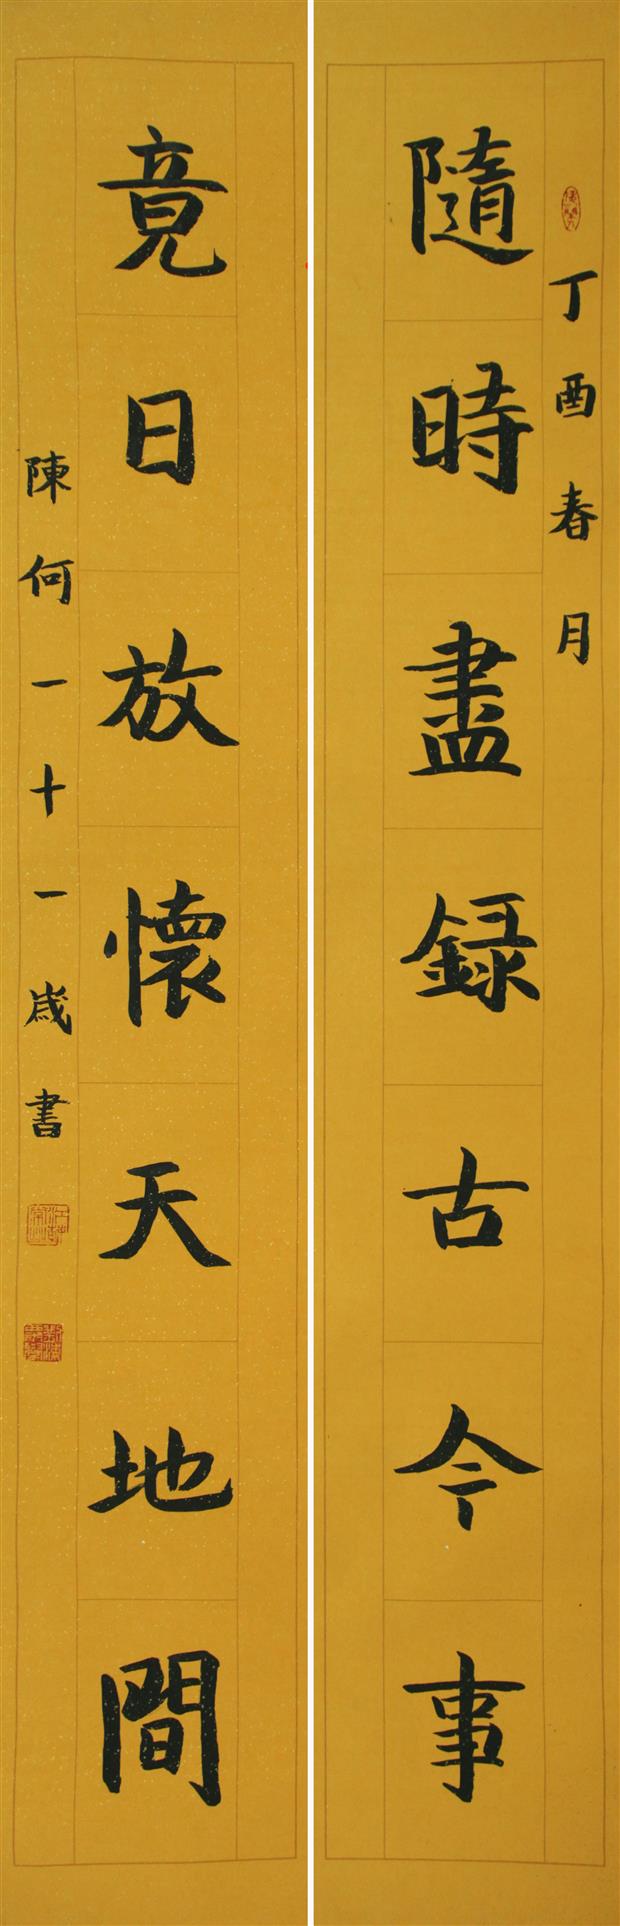 丁酉春月
隨時盡録古今事
竟日放懷天地間
陳何一十一歲書